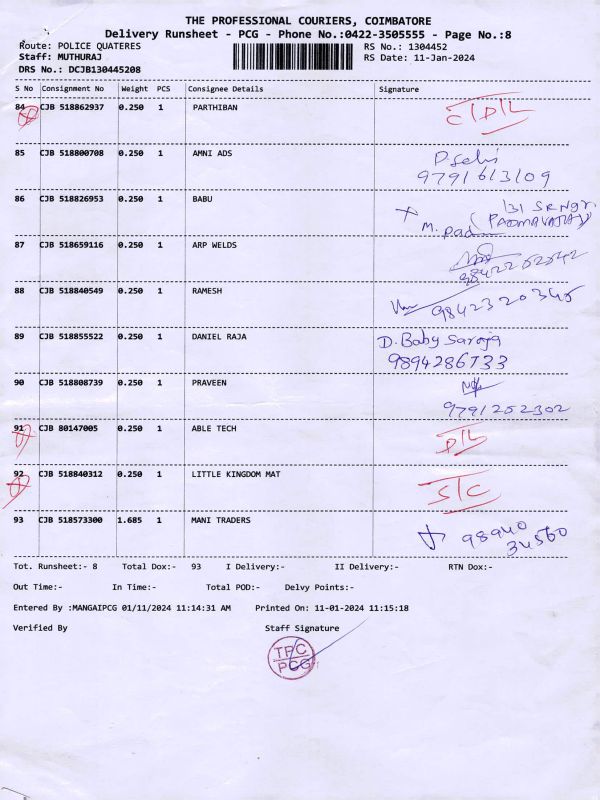 THE PROFESSIONAL COURIERS, COIMBATORE
Delivery Runsheet - PCG - Phone No.:0422-3505555 - Page No.:8
Route: POLICE QUATERES RS No.: 1304452
Staff: MUTHURAJ RS Date: 11-Jan-2024
DRS No.: DCJB130445208
S No Consignment No Weight PCS Consignee Details Signature
84 CJB 518862937 0.250 1 PARTHIBAN C/D/L
85 CJB 518800708 0.250 1 AMNI ADS
9791613109
86 CJB 518826953 0.250 1 BABU 131 SR Ngr.
M. Pad (PADMAVATHY)
87 CJB 518659116 0.250 1 ARP WELDS
88 CJB 518840549 0.250 1 RAMESH 9842320345
89 CJB 518855522 0.250 1 DANIEL RAJA D. Baby Saroja
9894286733
90 CJB 518808739 0.250 1 PRAVEEN
9791252302
91 CJB 80147005 0.250 1 ABLE TECH D/L
92 CJB 518840312 0.250 1 LITTLE KINGDOM MAT S/C
93 CJB 518573300 1.685 1 MANI TRADERS 98940
34560
Tot. Runsheet:- 8 Total Dox:- 93 I Delivery:- II Delivery:- RTN Dox:-
Out Time:- In Time:- Total POD:- Delvy Points:-
Entered By :MANGAIPCG 01/11/2024 11:14:31 AM Printed On: 11-01-2024 11:15:18
Verified By Staff Signature
TPC
PCG